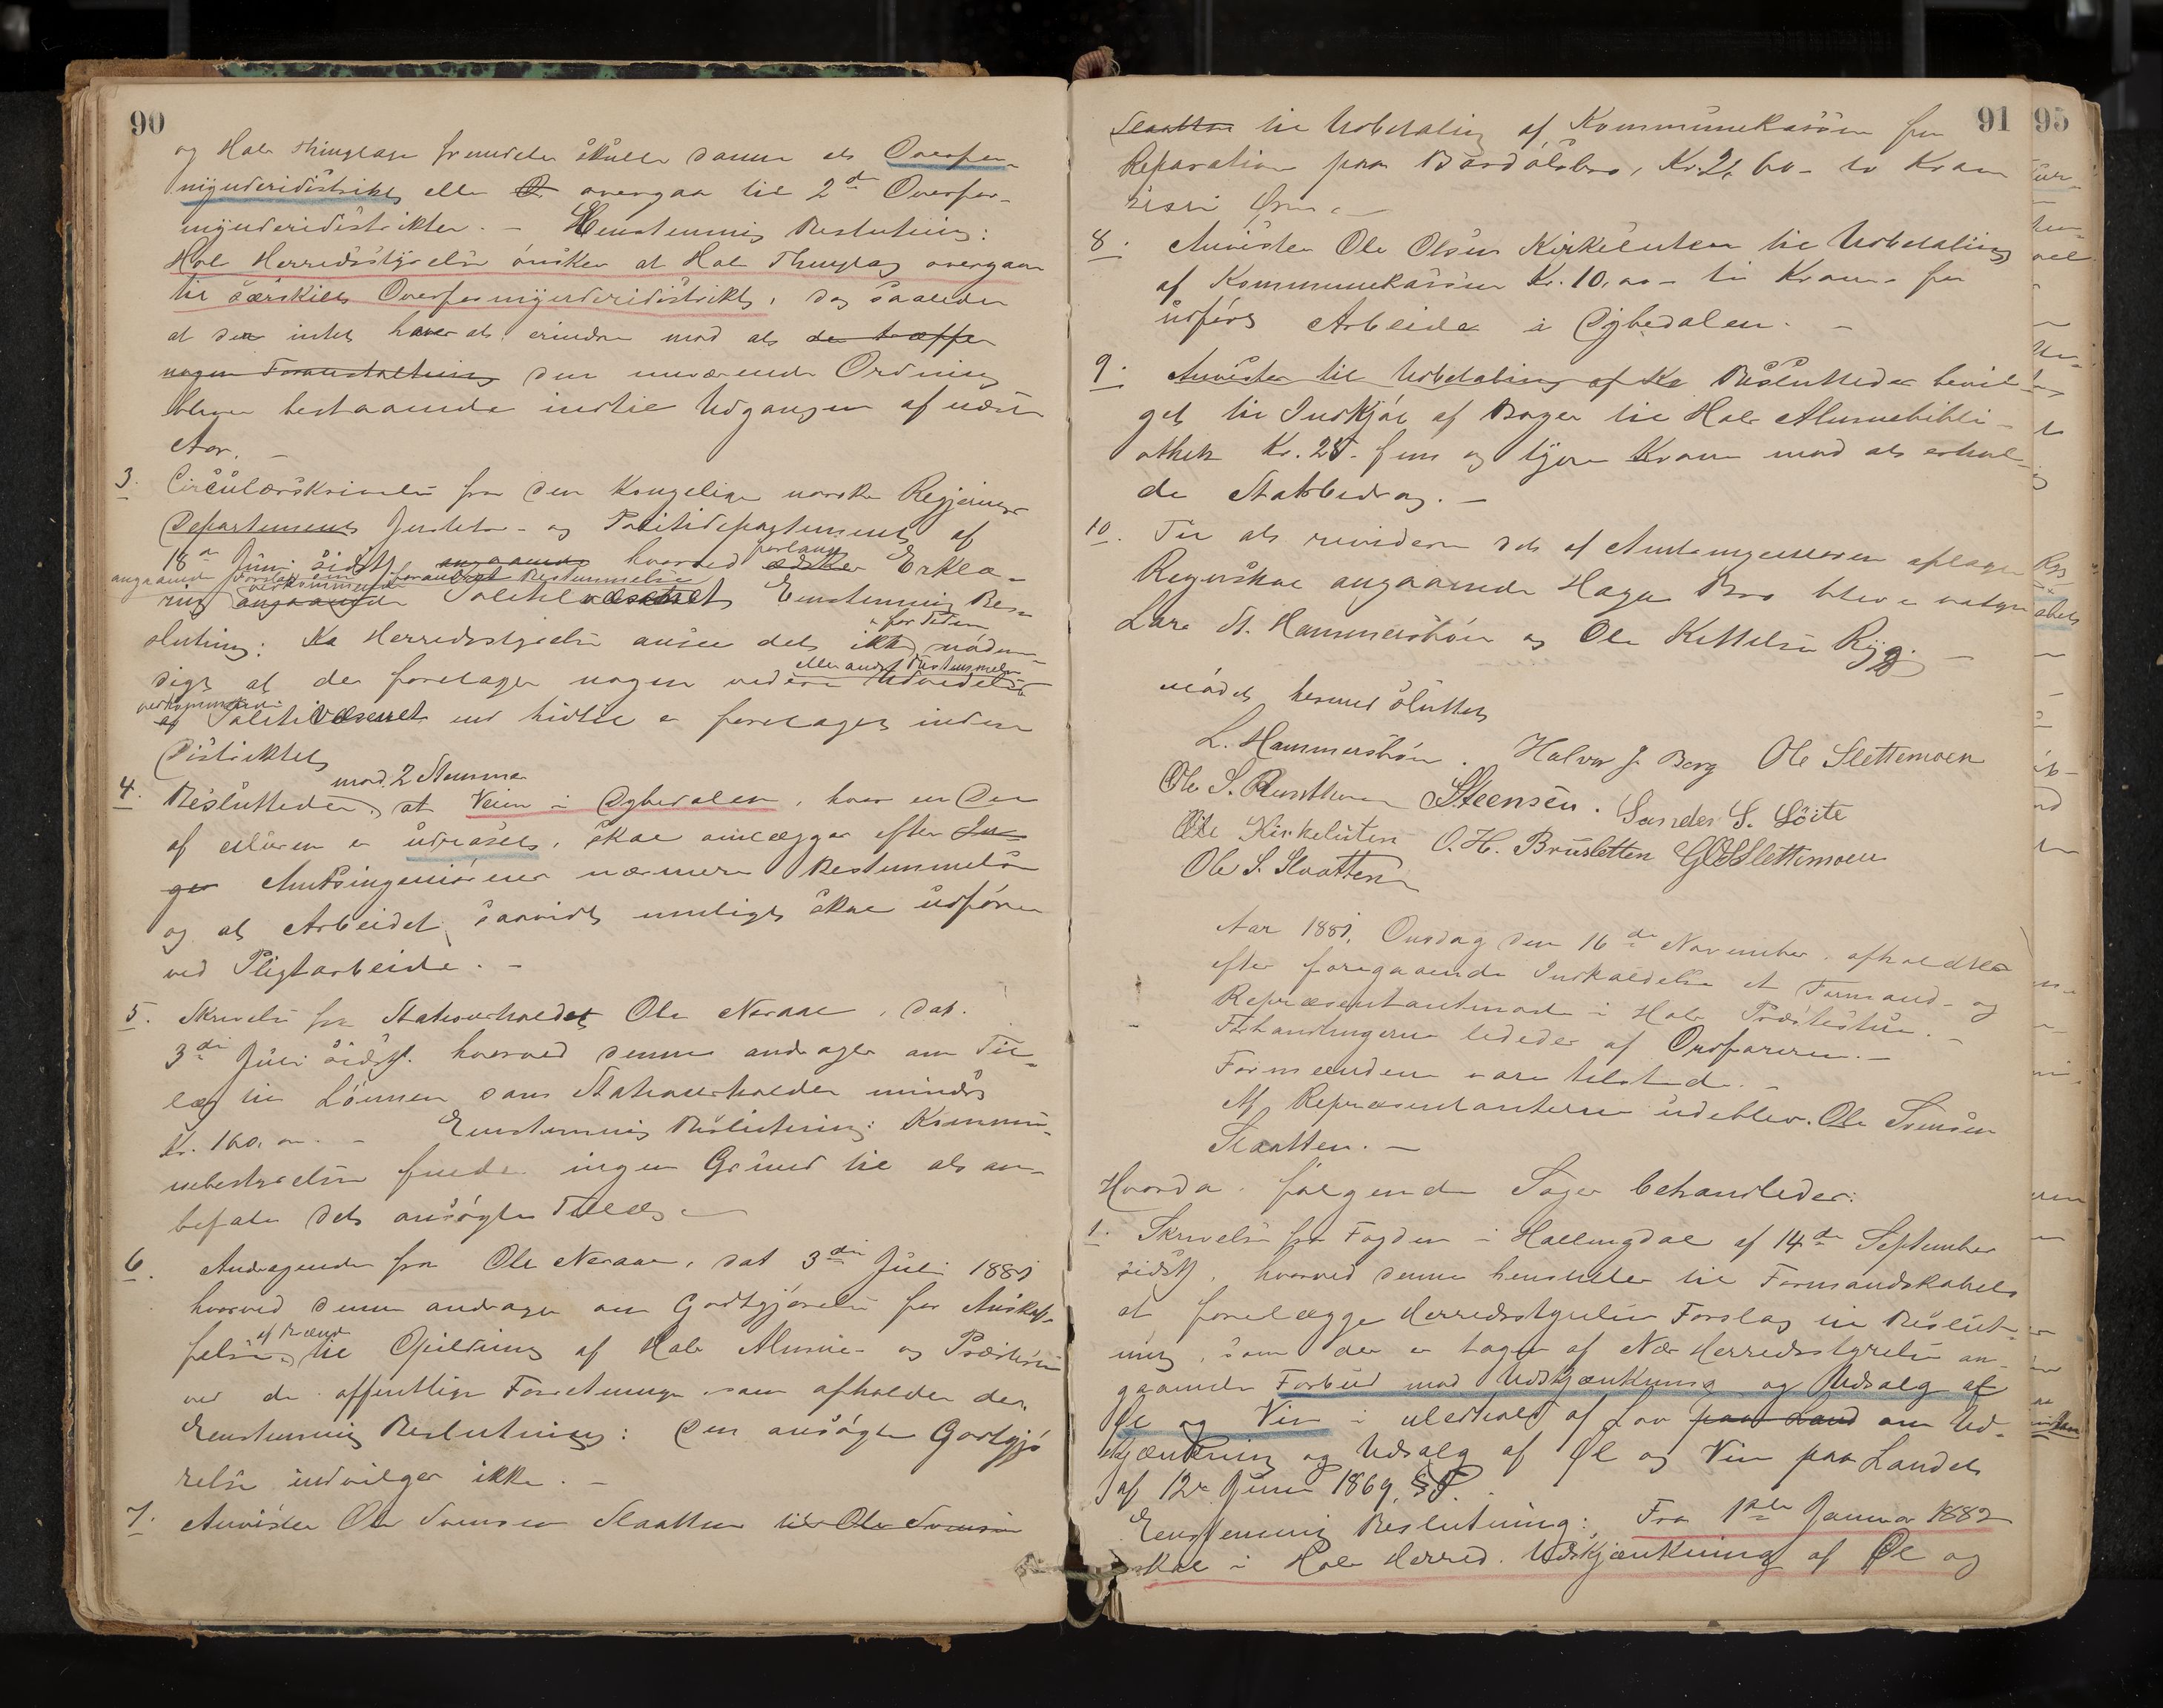 90
og Hols Thinglag fremdeles skulle danne et Overfor-
mynderidistrikt eller overgaa til 2det Overfor-
mynderidistrikter. - Eenstemmig Beslutning:
Hols Herredsstyrelse ønsker at Hols Thinglag overgaar
til særskilt Overformynderidistrikt, dog saaledes
at den intet haver at erindre mod at der træffes
nogen Foranstaltning den nuværende Ordning
bliver bestaaende indtil Udgangen af næste
Aar. -
3. Circulærskrivelse fra den Kongelige norske Regjerings
Departement Justits- og Politidepartement af
18de Juni sidstl. angaaende hvorved forlanges ædsker Erklæ-
angaaende Forslag om forandret Bestemmelse
ring angaaende vedkommende Politivæsenet Eenstemmig Bes-
slutning: Ka Herredsstyrelse anser det ikke for Tiden nødven-
digt at der foretages nogen videre Udvidelse eller andre Bestemmelser
vedkommende af Politivæsenet end hidtil er foretaget inden
Distriktet
4. Beslutteder mod 2 Stemmer at Veien i Dybedalen, hvor en Del
af Muren er udraset, skal omlægges efter In-
ger Amtsingeniørens nærmere Bestemmelse
og at Arbeidet saavidt muligt skal udføres
ved Pligtarbeide. -
5. Skrivelse fra Stationsholder Ole Neraal, dat.
3die Juli sidstl. hvorved denne andrager om Til-
læg til Lønnen som Stationsholder mindst
Kr. 160,00. - Eenstemmig Beslutning: Kommu-
nebestyrelsen finder ingen Grund til at an-
befale det ansøgte Tillæg. -
6. Andragende fra Ole Neraal, dat 3die Juli 1881
hvorved denne andrager om Godtgjørelse for Anskaf-
felse af Brænde til Opildning af Hols Almue- og Præstestue
ved de offentlige Forretninger som afholdes der.
Eenstemmig Beslutning: Den ansøgte Godtgjø
relse indvilges ikke. -
7. Anvistes Ole Svensen Slaatten til Ole Svensen
91
Slaatten til Udbetaling af Kommunekassen for
Reparation paa Bardølsbro, Kr. 2,60 - to Kroner
sexti Øre. -
8. Anvistes Ole Olsen Kirkesluten til Udbetaling
af Kommunekassen Kr. 10.00 - ti Kroner for
udført Arbeide i Dybedalen. -
9. Anvistes til Udbetaling af Ka Beslutteder bevil
get til Indkjøb af Bøger til Hols Almuebibli-
othek Kr. 25 - fem og tyve Kroner mod at erhol-
de Statsbidrag. -
10. Til at revidere det af Amtsingeniøren aflagte
Regnskab angaaende Haga Bro blev valgt
Lars A. Hammersbøen og Ole Kittelsen Ryg. -
Mødet hermed sluttet
L. Hammersbøen. Halvor J. Berg Ole Slettemoen
Ole S. Rusthoven Steensen. Sander S. Løite
Ole Kirkeluten O. H. Brusletten G O Slettemoen
Ole S. Slaatten
Aar 1881, Onsdag den 16de November afholdtes
efter foregaaende Indkaldelse et Formands- og
Repræsentantmøde i Hols Præstestue. -
Forhandlingerne lededes af Ordføreren. -
Formændene vare tilstede. -
Af Repræsentanterne udeblev Ole Svensen
Slaatten. -
Hvorda følgende Sager behandledes:
1. Skrivelse fra Fogden i Hallingdal af 14de September
sidstl, hvorved denne henstiller til Formandskabet
at forelægge Herredsstyrelsen Forslag til Beslut-
ning, som der er tagen af Næs Herredsstyrelse an-
gaaende Forbud mod Udskjænkning og Udsalg af
Øl og Vin i Medhold af Lov paa Land om Ud-
skjænkning og Udsalg af Øl og Vin paa Landet
af 12te Juni 1869, § 8.
Eenstemmig Beslutning: Fra 1ste Januar 1882
skal i Hols Herred Udskjænkning af Øl og
95